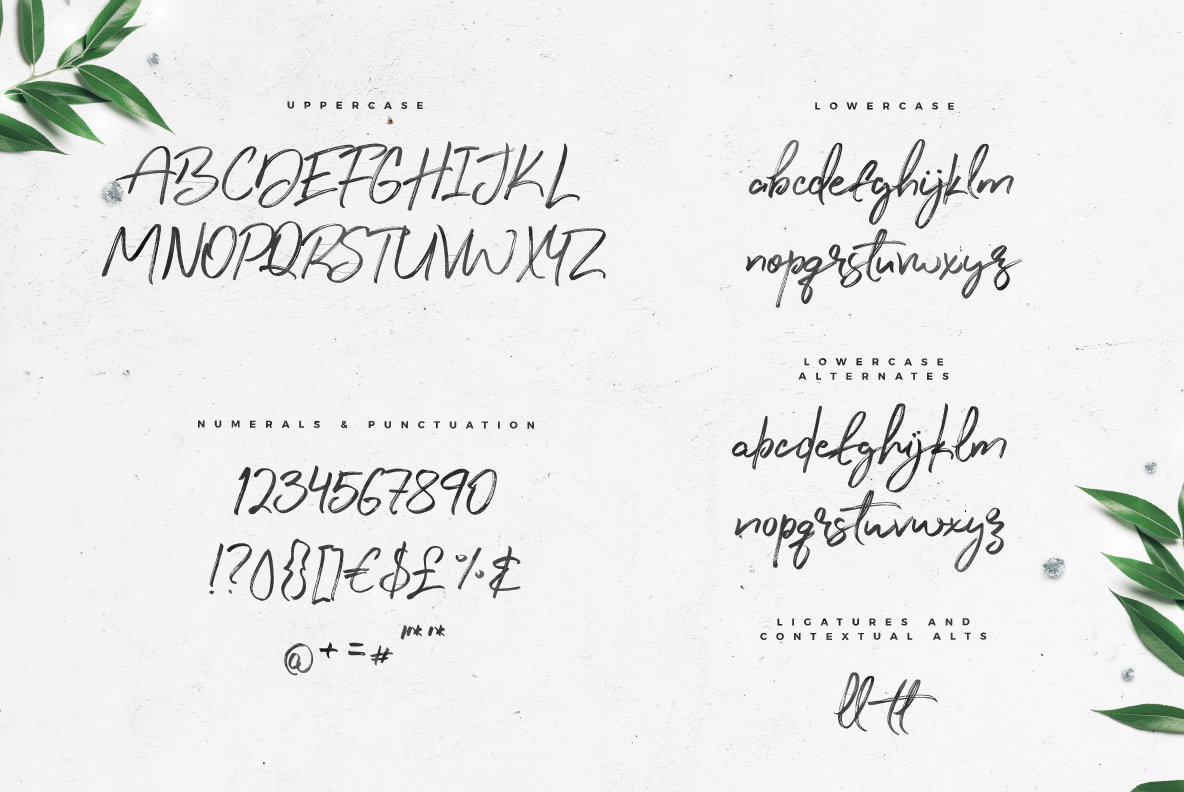 UPPERCASE
ABCDEFGHIJKL
MNOPQRSTUVWXYZ
NUMERALS & PUNCTUATION
1234567890
!?(){}[]€$£%¢
@+=#
LOWERCASE
abcdefghijklm
nopqrstuvwxyz
LOWERCASE
ALTERNATES
abcdefghijklm
nopqrstuvwxyz
LIGATURES AND
CONTEXTUAL ALTS
ll tt